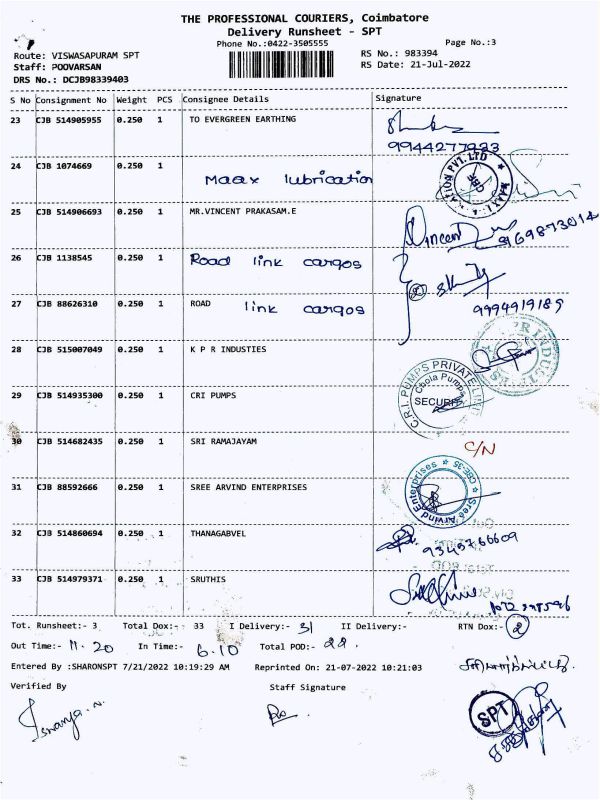 THE PROFESSIONAL COURIERS, Coimbatore
Delivery Runsheet - SPT
Phone No.:0422-3505555 Page No.:3
Route: VISWASAPURAM SPT RS No.: 983394
Staff: POOVARSAN RS Date: 21-Jul-2022
DRS No.: DCJB98339403
S No Consignment No Weight PCS Consignee Details Signature
23 CJB 514905955 0.250 1 TO EVERGREEN EARTHING
9944277933
24 CJB 1074669 0.250 1 Maax lubrication
CBE
25 CJB 514906693 0.250 1 MR.VINCENT PRAKASAM.E
Vincent
26 CJB 1138545 0.250 1 Road link cargos
27 CJB 88626310 0.250 1 ROAD link cargos 9994919189
28 CJB 515007049 0.250 1 K P R INDUSTIES
29 CJB 514935300 0.250 1 CRI PUMPS
C.R.I. PUMPS PRIVATE LIMITED
Chola Pumps
SECURITY
30 CJB 514682435 0.250 1 SRI RAMAJAYAM C/N
31 CJB 88592666 0.250 1 SREE ARVIND ENTERPRISES
Sree Arvind Enterprises CBE-35
32 CJB 514860694 0.250 1 THANAGABVEL
9345766609
33 CJB 514979371 0.250 1 SRUTHIS
Tot. Runsheet:- 3 Total Dox:- 33 I Delivery:- 31 II Delivery:- RTN Dox:- 2
Out Time:- 11.20 In Time:- 6.10 Total POD:- 22.
Entered By :SHARONSPT 7/21/2022 10:19:29 AM Reprinted On: 21-07-2022 10:21:03
Verified By Staff Signature
SPT